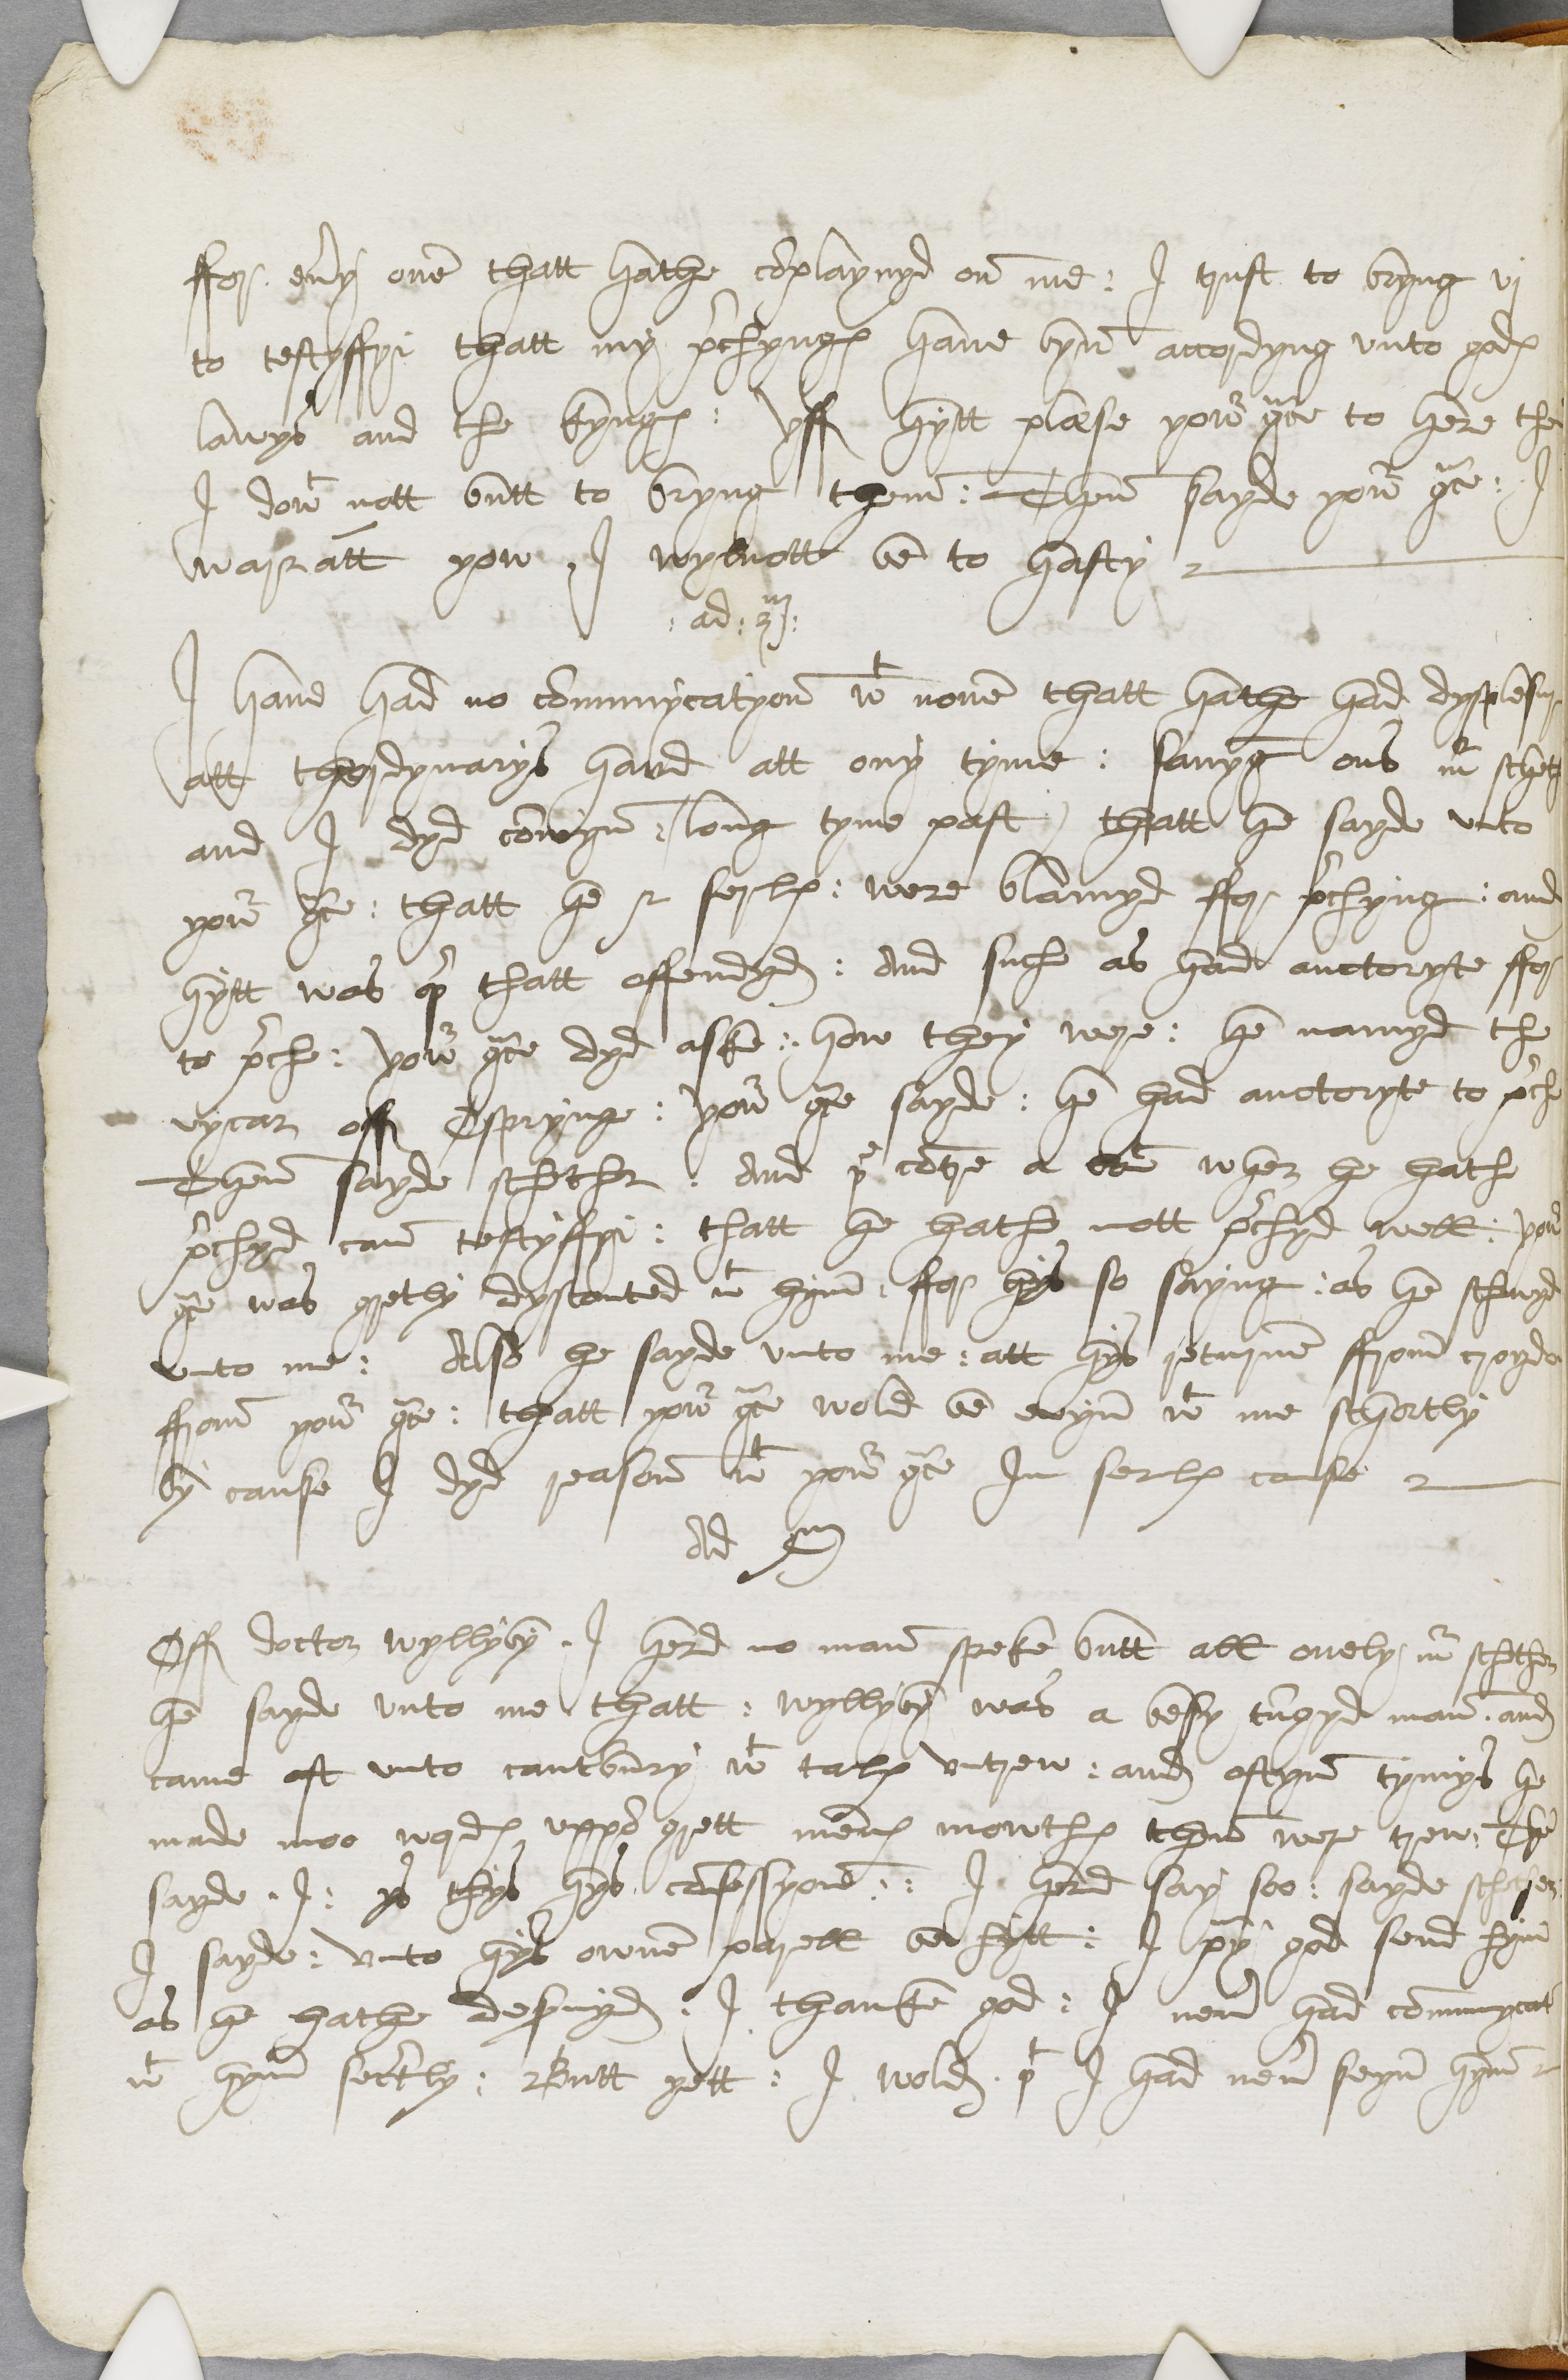 ffor eu͛y one thatt hathe cōplaynyd on me : I trust to bryng vj
to testyffyi thatt my p͛chyngꝭ haue byn accordyng vnto godꝭ
lawys and the kyngꝭ : yff hytt plese yowr g͛ce to here the
I dowt nott butt to bryng them : Then sayde yowr g͛ce : I
warrātt yow , I wyl nott be to hasty
: ad :
I haue had no cōmmycatyon wt none thatt hathe had dysplesur
att thordynarys hand att ony tyme : sauyg ons mr schether
and I dyd comyn : long tyme past / thatt he sayde vnto
yowr g͛ce : thatt he & serlꝭ : were blamyd ffor p͛chyng : and
hytt was op͛ thatt offendyd : And suche as had auctoryte ffor
to p͛che : yowr g͛ce dyd aske : how they were : he namyd the
vycar off Osprynge : yowr g͛ce sayde : he had auctoryte to p͛che
Then sayde schether : And þe cōtre a bowt wher he hath
p͛chyd can testyffyi : thatt he hathe nott p͛chyd well : yowr
g͛ce was gretly dysconted wt hym : ffor hys so sayng : as he schewyd
vnto me : Also he sayde vnto me : att hys returne ffrom croydon
ffrom yowr g͛ce : thatt yowr g͛ce wold be evyn wt me schortly
by cause I dyd reason wt yowr g͛ce In serlꝭ cause
Ad
Off doctor wyllyby . I herd no man speke butt all onely mr schether
he sayde vnto me thatt : wyllyby was a besy tūgyd man . and
came oft vnto cantbury wt talꝭ vntrew : and oftyn tymys he
made moo wordꝭ vppō grett menꝭ mowthꝭ then were trew : The
sayde . I : ys thys hys confessyone : I herd say soo : sayde schether
I sayde : vnto hys owne parell be hytt : I p͛y god send hym
as he hathe deseruyd : I thanke god : I neu͛ had commycat
wt hym secrtly : Butt yett : I wold . þt I had neu͛ seyn hym